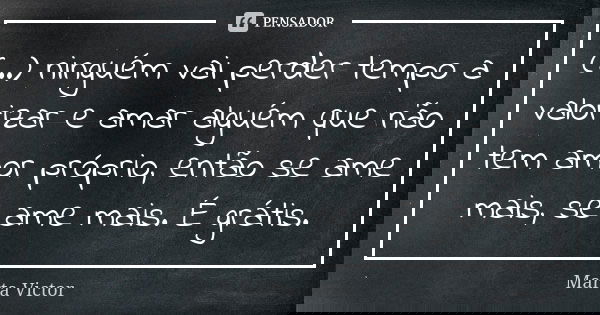 PENSADOR
(...) ninguém vai perder tempo a
valorizar e amar alguém que não
tem amor próprio, então se ame
mais, se ame mais. É grátis.
Marta Victor